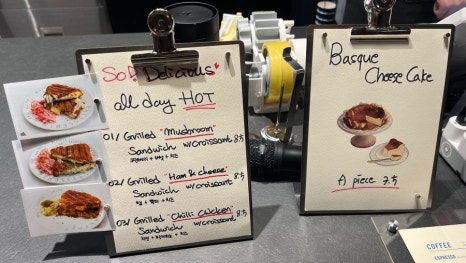 So Delicious
all day HOT
01/ Grilled "Mushroom"
Sandwich w/croissant 8.5
02/ Grilled "Ham & cheese"
Sandwich w/croissant 8.5
03/ Grilled "Chilli Chicken"
Sandwich w/croissant 8.5
Basque
Cheese Cake
A piece 7.5
COFFEE
ESPRESSO